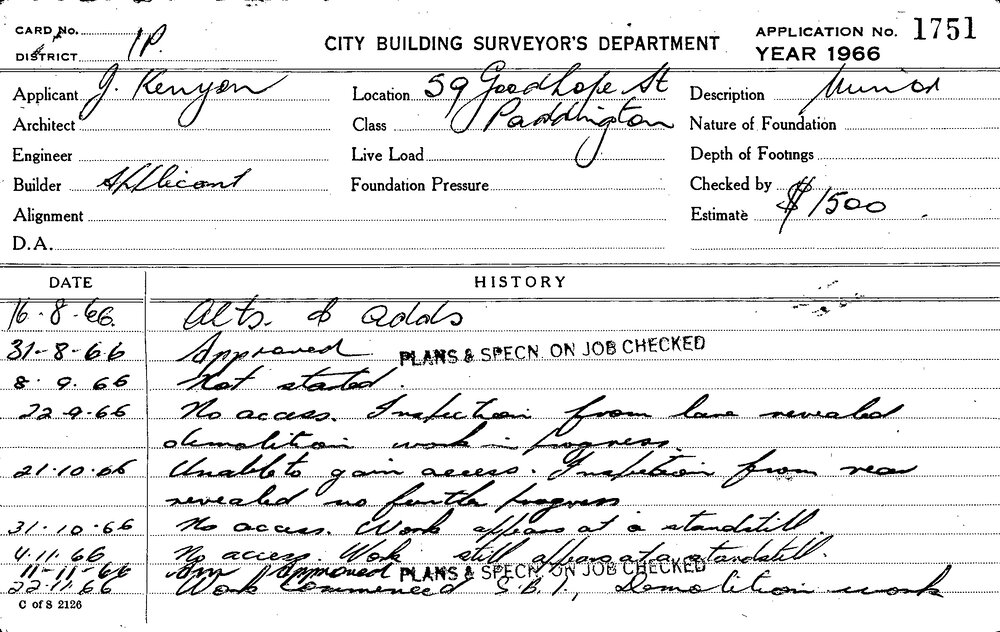 CARD No.
DISTRICT 1P.
CITY BUILDING SURVEYOR'S DEPARTMENT
APPLICATION No. 1751
YEAR 1966
Applicant J. Kenyon
Location 59 Goodhope St
Description Minor
Architect
Class Paddington
Nature of Foundation
Engineer
Live Load
Depth of Footings
Builder Applicant
Foundation Pressure
Checked by
Alignment
Estimate $1500
D.A.
DATE HISTORY
16.8.66. Alts. & adds
31-8-66 Approved PLANS & SPECN. ON JOB CHECKED
8.9.66 Not started.
22-9-66 No access. Inspection from lane revealed
demolition work in progress.
21.10.66 Unable to gain access. Inspection from rear
revealed no further progress
31.10.66 No access. Work appears at a standstill.
4.11.66 No access. Work still appears at a standstill.
11-11-66 Am Approved PLANS & SPECN. ON JOB CHECKED
22.11.66 Work commenced S.B.I., Demolition work
C of S 2126